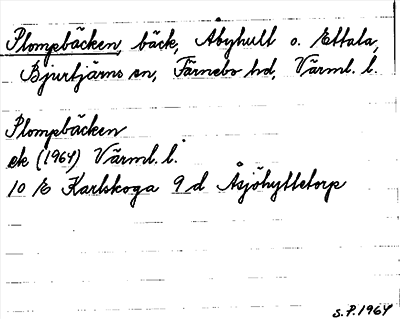 Plompbäcken, bäck, Abyhult o. Ettala,
Bjurtjärns sn, Färnebo hd, Värml. l.
Plompbäcken
ek (1964) Värml. l.
10 E Karlskoga 9 d Åsjöhyttetorp
S.P. 1964